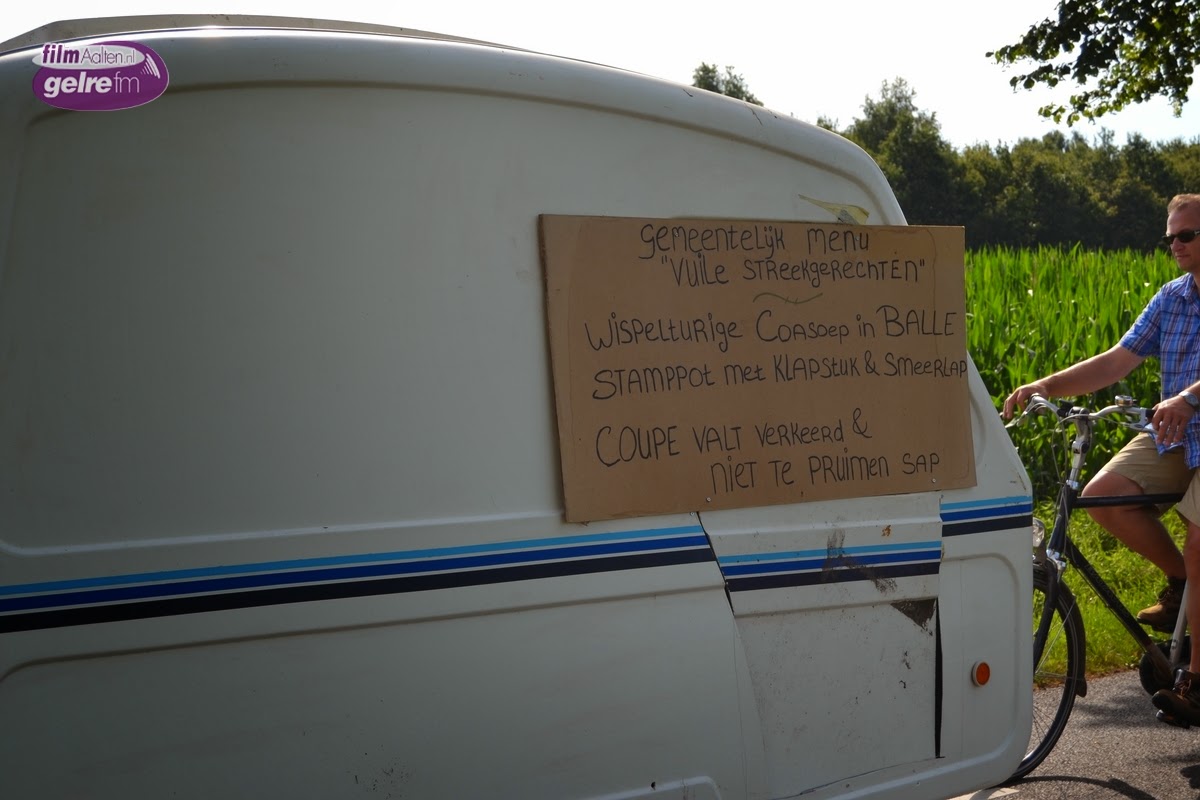 filmAalten.nl
gelre fm
GEMEENTELIJK MENU
"VUILE STREEKGERECHTEN"
WISPELTURIGE COASOEP in BALLE
STAMPPOT Met KLAPSTUK & SMEERLAP
COUPE VALT VERKEERD &
NIET TE PRUIMEN SAP